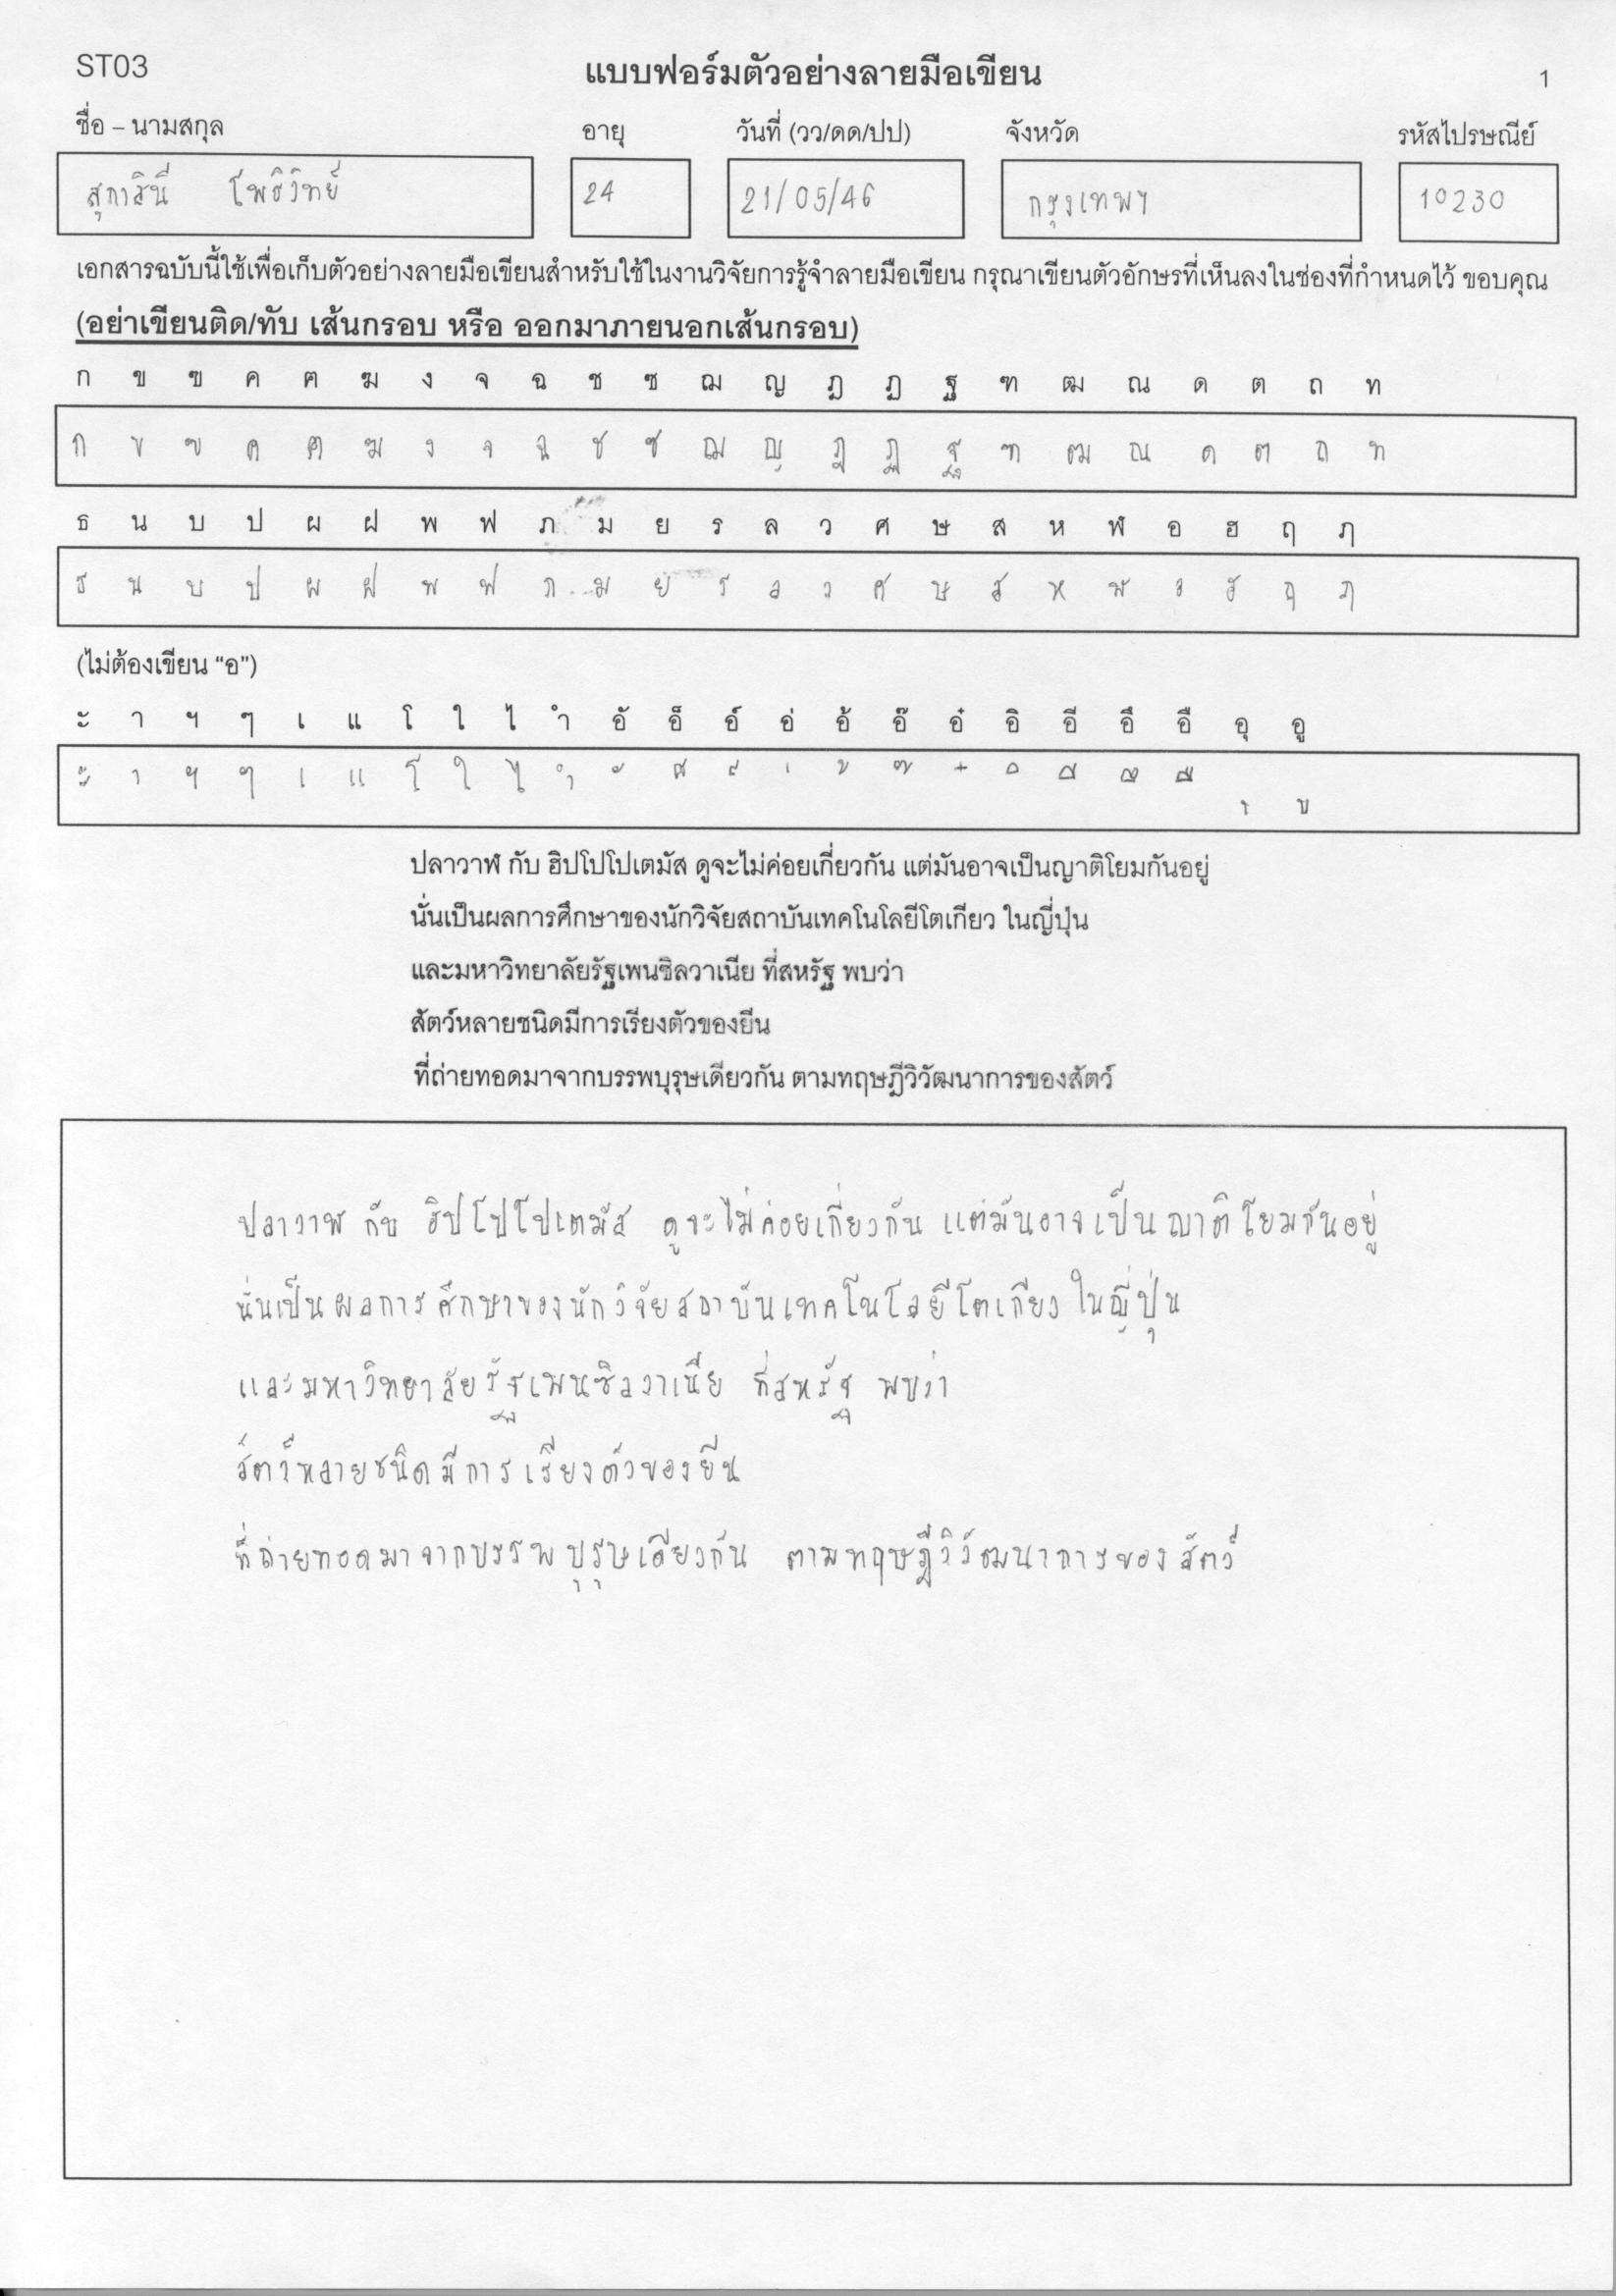 ST03 แบบฟอร์มตัวอย่างลายมือเขียน 1
ชื่อ – นามสกุล อายุ วันที่ (วว/ดด/ปป) จังหวัด รหัสไปรษณีย์
สุกาสินี โพธิวิทย์ 24 21/05/46 กรุงเทพฯ 10230
เอกสารฉบับนี้ใช้เพื่อเก็บตัวอย่างลายมือเขียนสำหรับใช้ในงานวิจัยการรู้จำลายมือเขียน กรุณาเขียนตัวอักษรที่เห็นลงในช่องที่กำหนดไว้ ขอบคุณ
(อย่าเขียนติด/ทับ เส้นกรอบ หรือ ออกมาภายนอกเส้นกรอบ)
ก ข ฃ ค ฅ ฆ ง จ ฉ ช ซ ฌ ญ ฎ ฏ ฐ ฑ ฒ ณ ด ต ถ ท
ก ข ฃ ค ฅ ฆ ง จ ฉ ช ซ ฌ ญ ฎ ฏ ฐ ฑ ฒ ณ ด ต ถ ท
ธ น บ ป ผ ฝ พ ฟ ภ ม ย ร ล ว ศ ษ ส ห ฬ อ ฮ ฤ ฦ
ธ น บ ป ผ ฝ พ ฟ ภ ม ย ร ล ว ศ ษ ส ห ฬ อ ฮ ฤ ฦ
(ไม่ต้องเขียน “อ”)
ะ า ฯ ๆ เ แ โ ใ ไ ำ อั อ็ อ์ อ่ อ้ อ๊ อ๋ อิ อี อึ อื อุ อู
ะ า ฯ ๆ เ แ โ ใ ไ ำ ั ็ ์ ่ ้ ๊ ๋ ิ ี ึ ื ุ ู
ปลาวาฬ กับ ฮิปโปโปเตมัส ดูจะไม่ค่อยเกี่ยวกัน แต่มันอาจเป็นญาติโยมกันอยู่
นั่นเป็นผลการศึกษาของนักวิจัยสถาบันเทคโนโลยีโตเกียว ในญี่ปุ่น
และมหาวิทยาลัยรัฐเพนซิลวาเนีย ที่สหรัฐ พบว่า
สัตว์หลายชนิดมีการเรียงตัวของยีน
ที่ถ่ายทอดมาจากบรรพบุรุษเดียวกัน ตามทฤษฎีวิวัฒนาการของสัตว์
ปลาวาฬ กับ ฮิปโปโปเตมัส ดูจะไม่ค่อยเกี่ยวกัน แต่มันอาจเป็นญาติโยมกันอยู่
นั่นเป็นผลการศึกษาของนักวิจัยสถาบันเทคโนโลยีโตเกียว ในญี่ปุ่น
และมหาวิทยาลัยรัฐเพนซิลวาเนีย ที่สหรัฐ พบว่า
สัตว์หลายชนิดมีการเรียงตัวของยีน
ที่ถ่ายทอดมาจากบรรพบุรุษเดียวกัน ตามทฤษฎีวิวัฒนาการของสัตว์